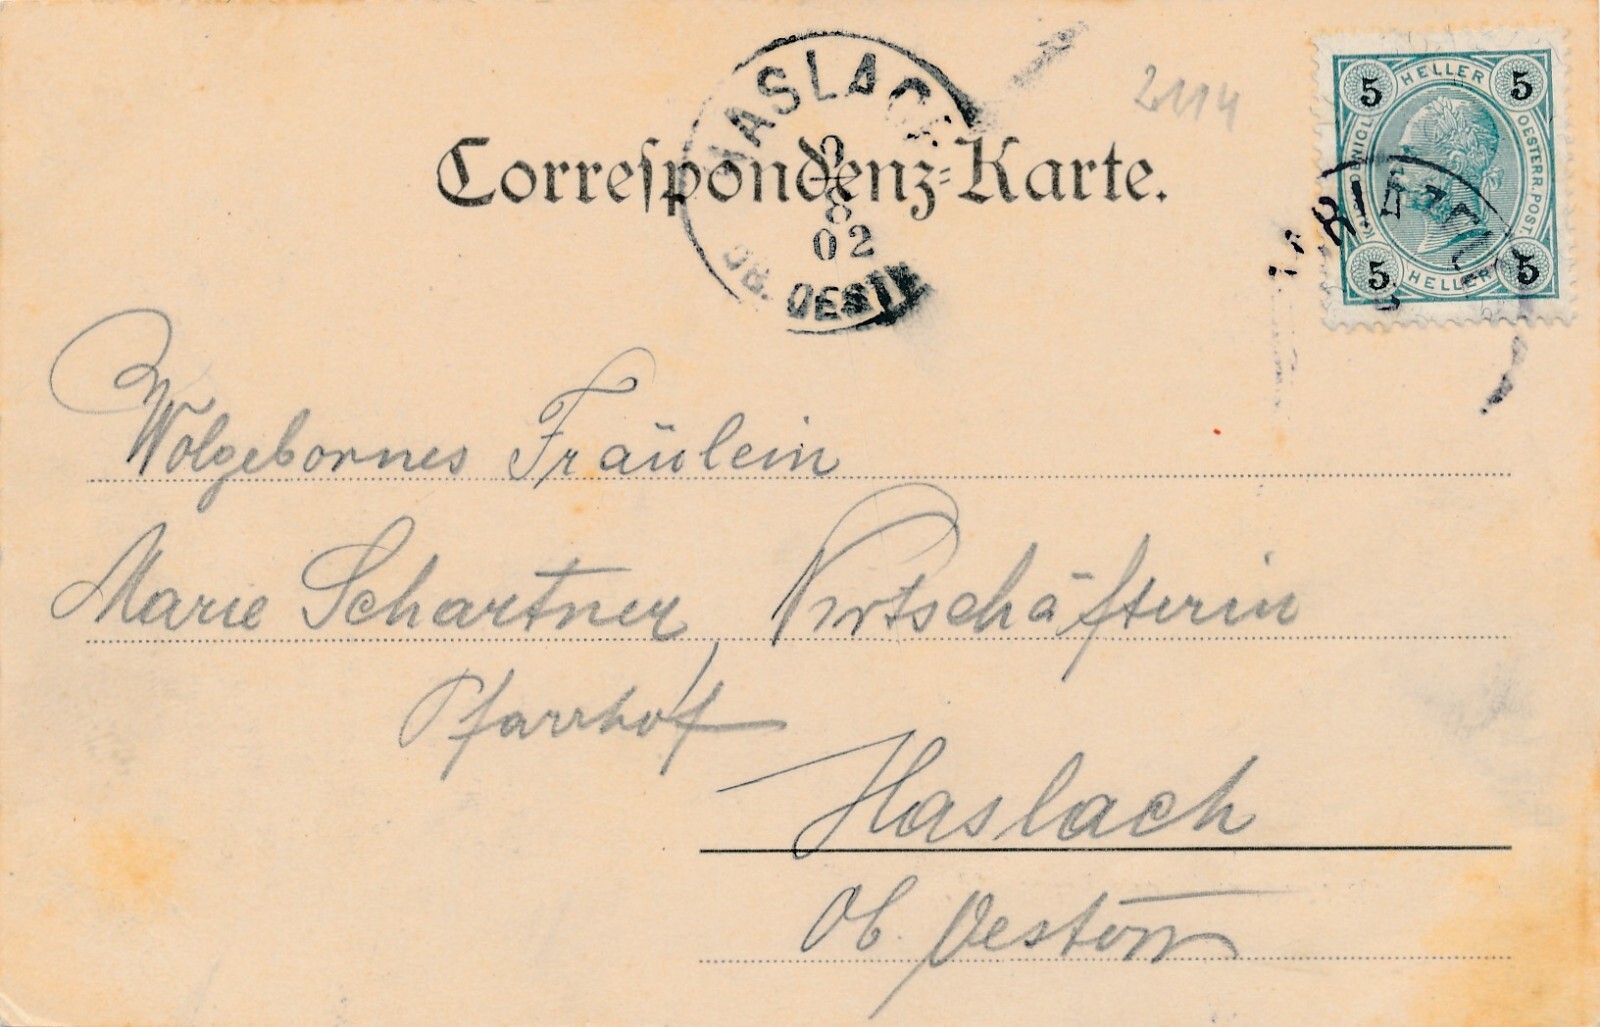 Correspondenz-Karte.
HASLACH
9
8
02
OB. OESTR
2114
5 HELLER 5
OESTERR. POST.
5 HELLER 5
Wolgebornes Fräulein
Marie Schartner, Wirtschäfterin
Pfarrhof
Haslach
Ob. Oesterr